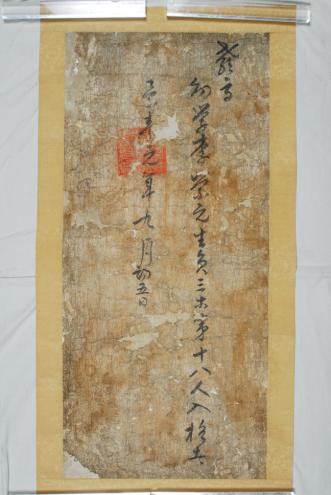 教旨
幼學李元生員三等第十八人入格者
泰元年九月初五日